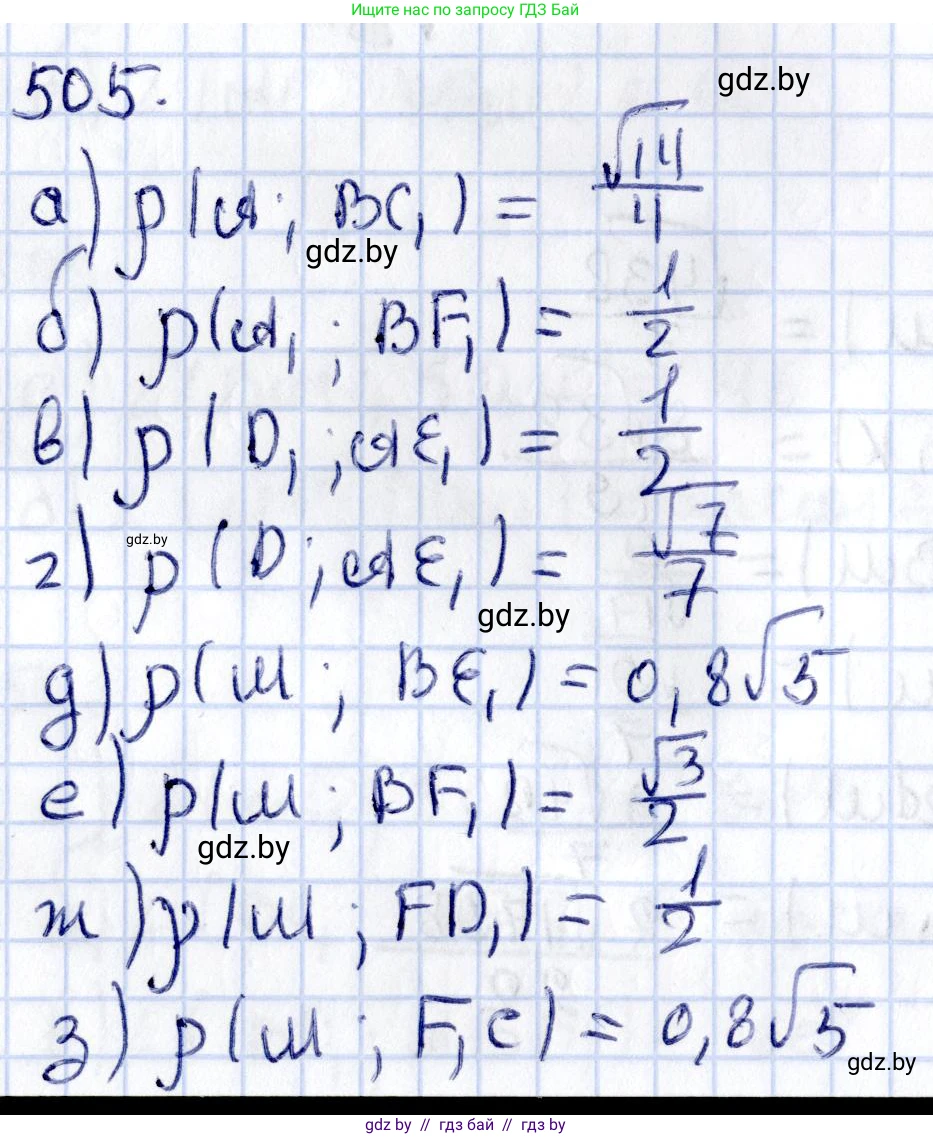 Ищите нас по запросу ГДЗ Бай
505.
gdz.by
а) ρ(A; BC₁) = √14/4
gdz.by
б) ρ(A₁; BF₁) = 1/2
в) ρ(D₁; AE₁) = 1/2
gdz.by
г) ρ(D; AE₁) = √7/7
gdz.by
д) ρ(M; BE₁) = 0,8√5
е) ρ(M; BF₁) = √3/2
gdz.by
ж) ρ(M; FD₁) = 1/2
з) ρ(M; F₁C) = 0,8√5
gdz.by
gdz.by // гдз бай // gdz.by